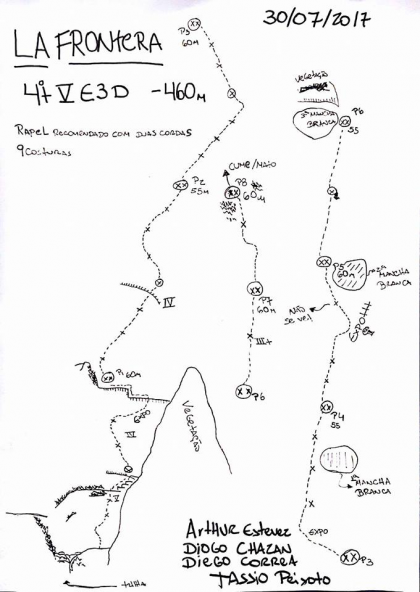 30/07/2017
LA FRONTERA
4º V E3 D -460M
RAPEL RECOMENDADO COM DUAS CORDAS
9 COSTURAS
P3
60M
P2
55M
CUME/MATO
P8
60M
VEGETAÇÃO
3ª MANCHA
BRANCA
P6
55
P5
60M
2ª MANCHA
BRANCA
IV
P7
60M
NÃO
SE VÊ!
III+
P1 60M
P6
EXPO
IV
VEGETAÇÃO
P4
55
V
1ª
MANCHA
BRANCA
EXPO
P3
ARTHUR Estevez
DIOGO CHAZAN
DIEGO CORREA
TASSIO Peixoto